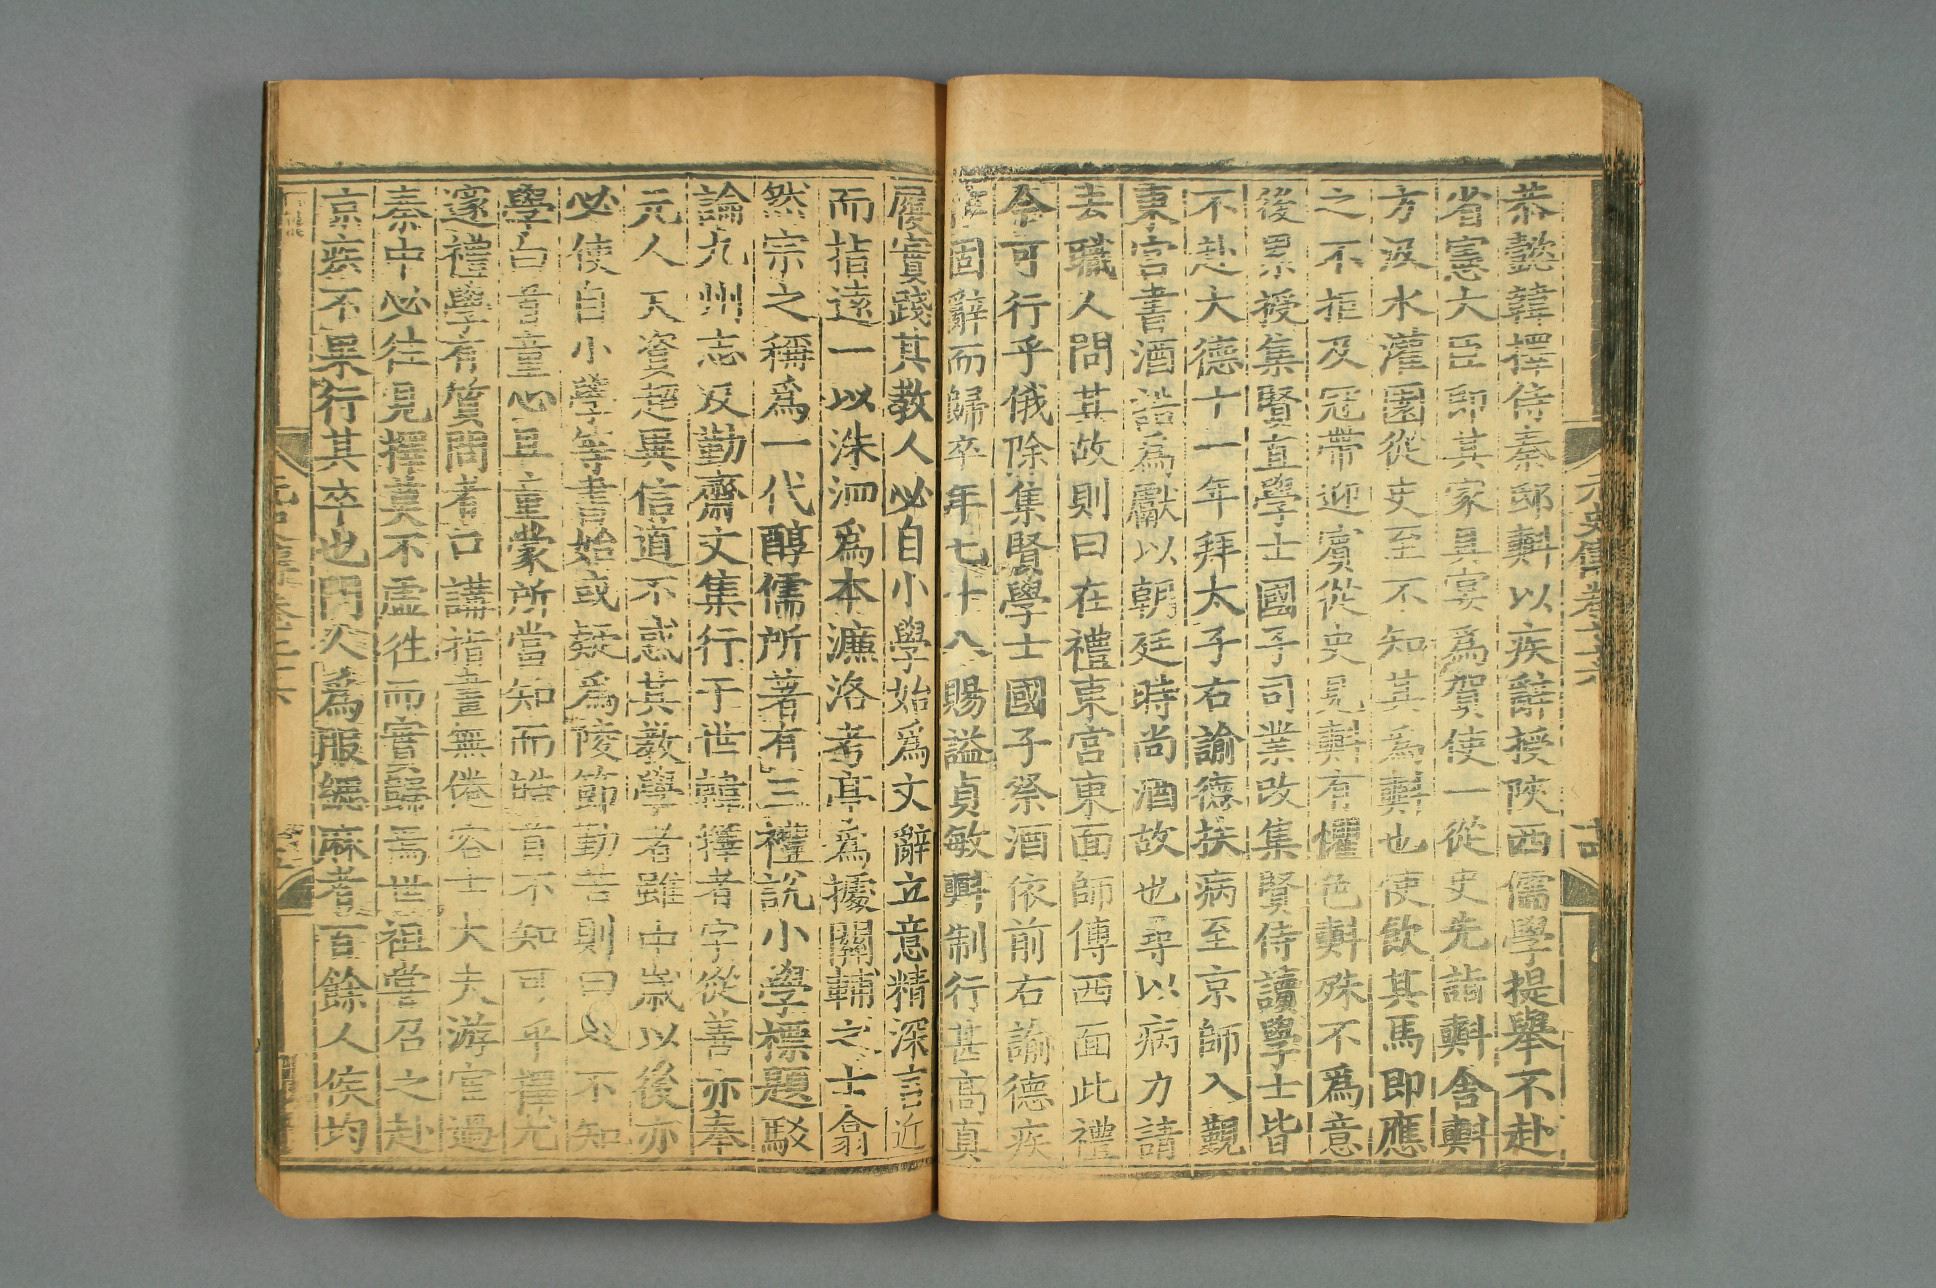 元史傳卷七十六
恭懿韓擇侍秦邸㪺以疾辭授陝西儒學提舉不赴
省憲大臣即其家具宴爲賀使一從吏先詣㪺舍㪺
方汲水灌園從吏至不知其爲㪺也使飲其馬即應
之不拒及冠帶迎賓從吏見㪺有懼色㪺殊不爲意
後累授集賢直學士國子司業改集賢侍讀學士皆
不赴大德十一年拜太子右諭德扶病至京師入覲
東宮書酒誥爲獻以朝廷時尚酒故也尋以病力請
去職人問其故則曰在禮東宮東面師傅西面此禮
今可行乎俄除集賢學士國子祭酒依前右諭德疾
固辭而歸卒年七十八賜謚貞敏㪺制行甚高真
履實踐其教人必自小學始爲文辭立意精深言近
而指遠一以洙泗爲本濂洛考亭爲據關輔之士翕
然宗之稱爲一代醇儒所著有三禮說小學標題駁
論九州志及勤齋文集行于世韓擇者字從善亦奉
元人天資超異信道不惑其教學者雖中歲以後亦
必使自小學等書始或疑爲陵節勤苦則曰人不知
學白首童心且童蒙所當知而皓首不知可乎擇尤
邃禮學有質問者口講指畫無倦容士大夫游宦過
秦中必往見擇莫不虛往而實歸焉世祖嘗召之赴
京疾不果行其卒也門人爲服緦麻者百餘人侯均